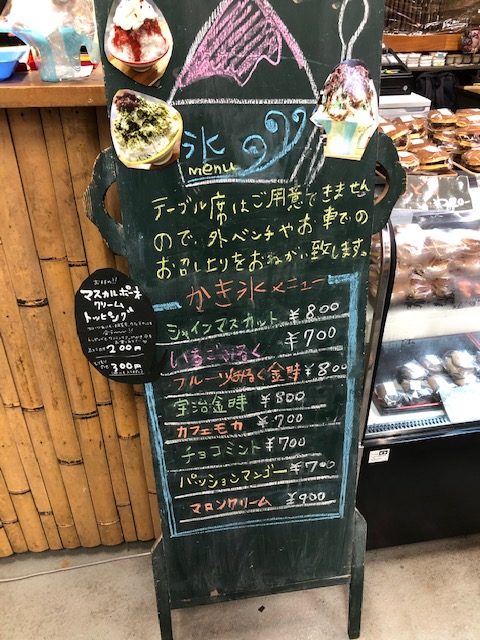 氷
menu
テーブル席はご用意できません
ので、外ベンチやお車での
お召し上りをおねがい致します。
かき氷メニュー
シャインマスカット ￥800
いちごみるく ￥700
フルーツみるく金時 ￥800
宇治金時 ￥800
カフェモカ ￥700
チョコミント ￥700
パッションマンゴー ￥700
マロンクリーム ￥900
マスカルポーネ
クリーム
トッピング
200円
300円